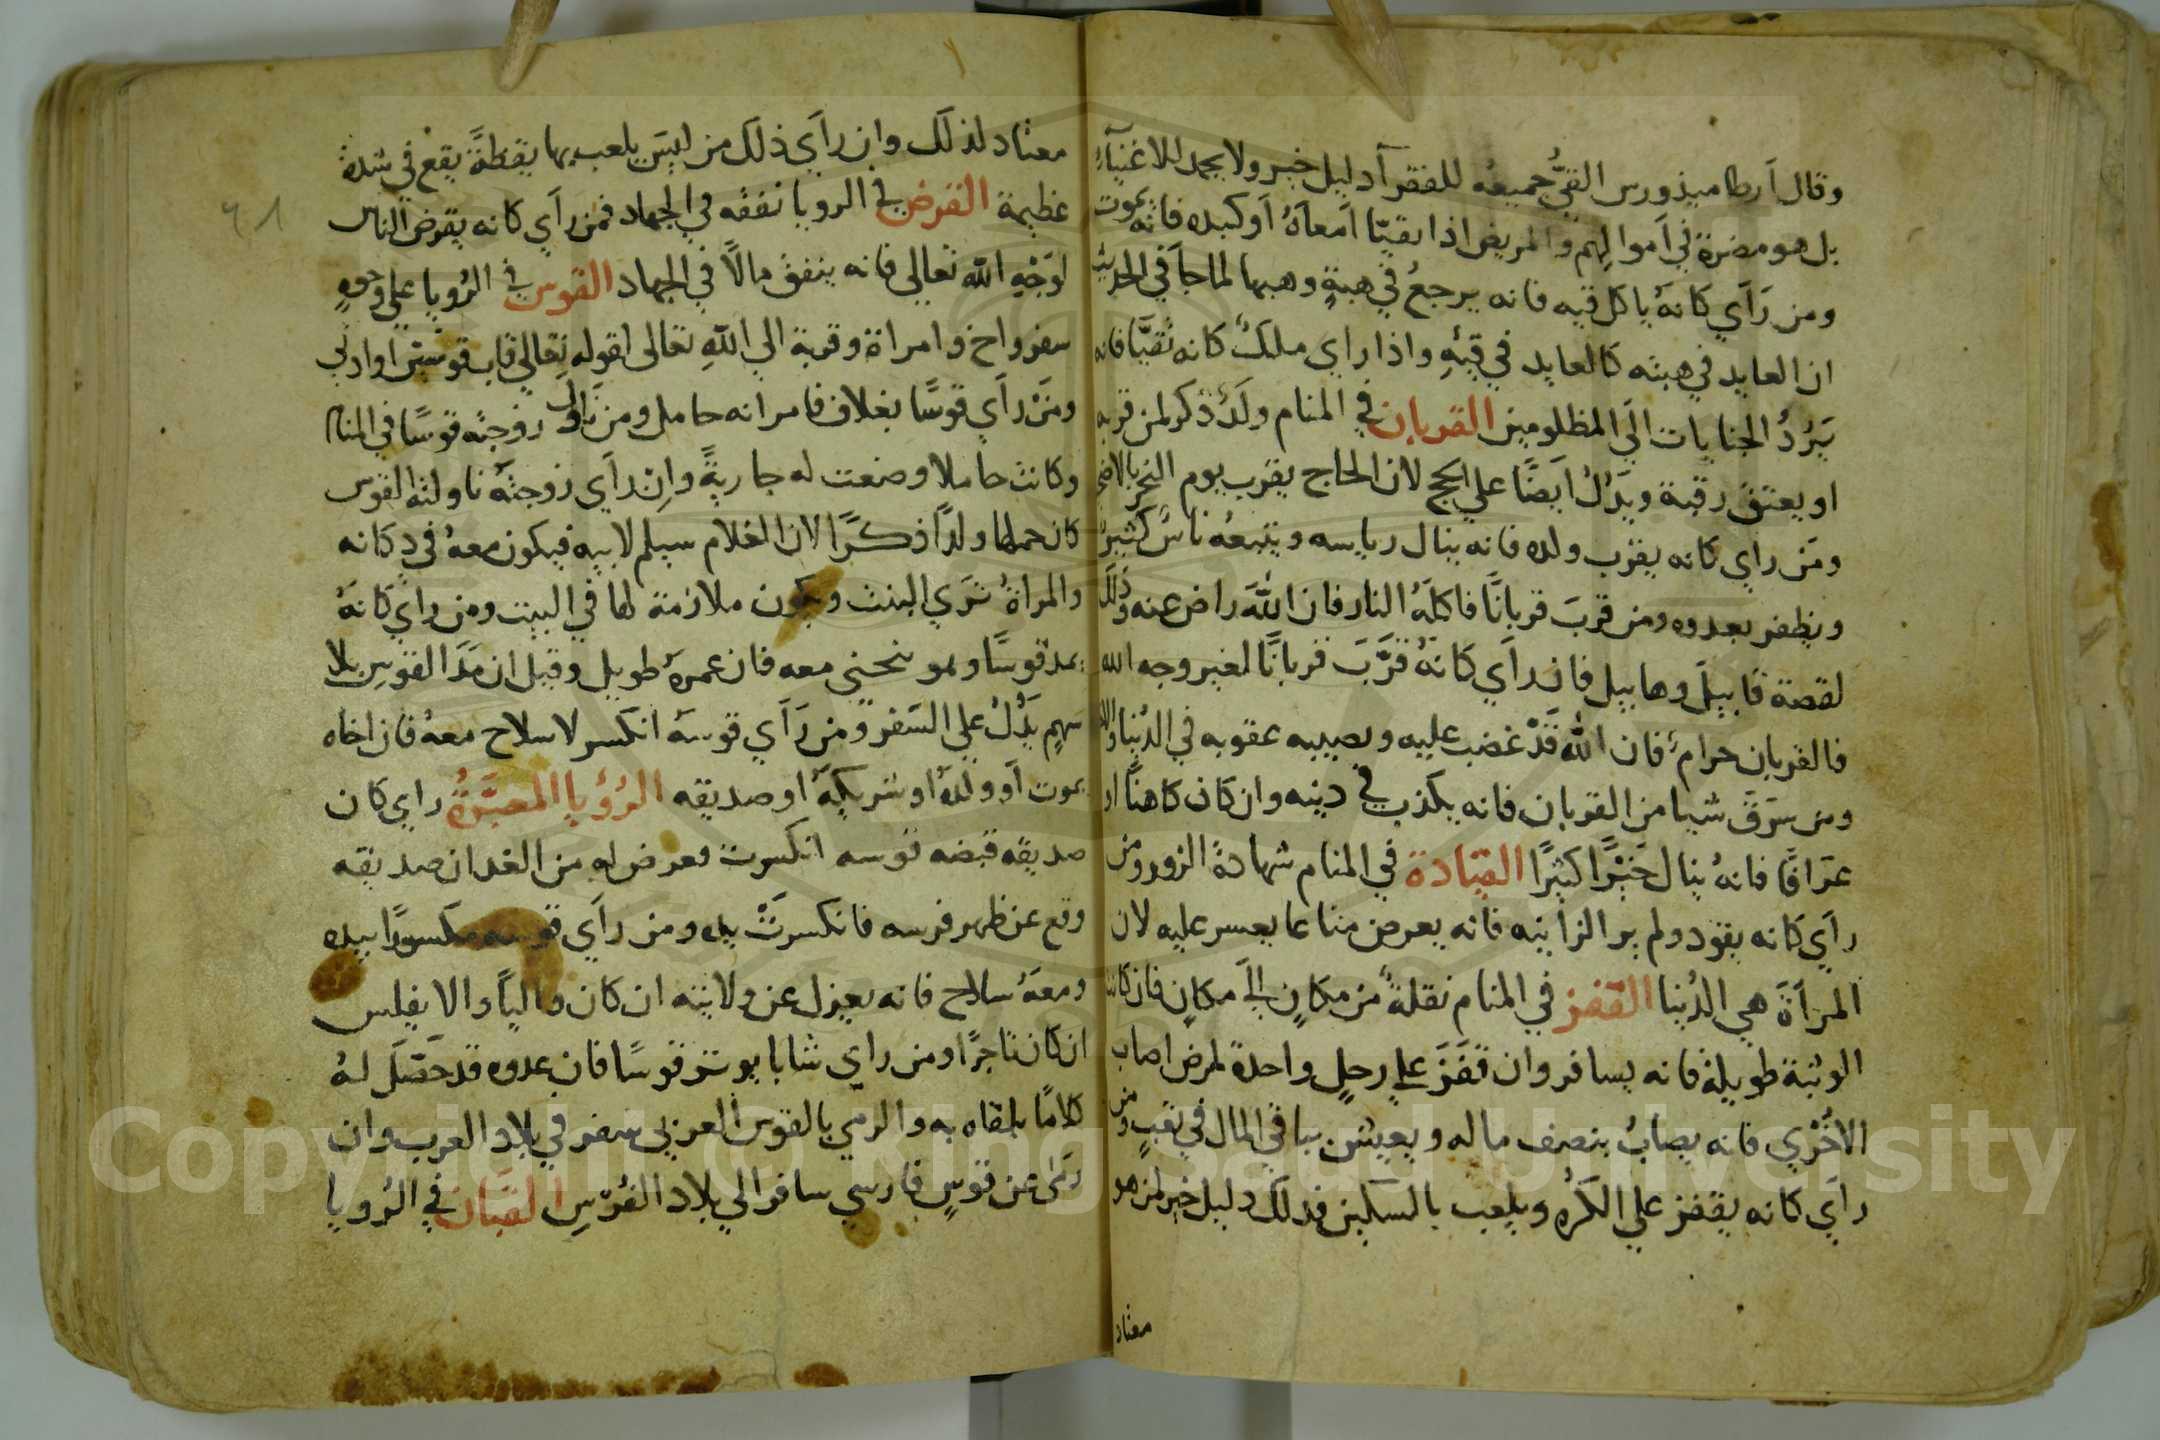 وقال ارطاميذورس القيُّ جميعه للفقرآ دليل خير ولا يحمد للاغنيآء
بل هو مضرة في اموالهم والمريض اذا يقيّا امعآهُ او كبده فانه يموت
ومن رَاَي كَانهُ ياكل قيه فانه يرجعُ في هبةٍ وهبها لما جآ في الحديث
ان العايد في هبته كالعايد في قيهِ واذا راي ملكٌ كانه تقيَّا فانه
يَرُدُ الجنايات الَي المظلومين القربان في المنام ولَدٌ ذكر لمن قربه
او يعتق رقبة ويَدُلُ ايضًا علي الحج لان الحاج يقرب يوم النحر بالاضحي
ومَن راي كانه يقرب ولده فانه ينال رياسه ويتبعُه ناسٌ كثيرٌ
ويظفر بعدوه ومن قربَ قربانًا فاكلَهُ النار فان اللهَ راض عنه وذلَك
لقصة قابيل وهابيل فان راَي كَانهُ قرَّبَ قربانًا لغير وجه الله
فالقربان حرامٌ فان الله قَدْ غضب عليه ويصيبه عقوبه في الدُنيا
ومن سَرقَ شيا من القربان فانه يكذب في دينه وان كان كاهنًا او
عرافًا فانهُ ينال خَيْرًا كثيرًا القيادة في المنام شهادةُ الزور ومن
راَي كانه يقود ولم ير الزانيه فانه يعرض متاعا يعسر عليه لان
المرَاَةَ هي الدُنيا القفز في المنام نقلةٌ من مكانٍ الَي مكانٍ فان كانت
الوثبة طويلة فانه يسافر وان قفَزَ علي رجلٍ واحدة لمرض اصاب
الاخُرْي فانه يصابُ بنصف ماله ويعيش بباقي المال في تعبٍ ومن
راَي كانه يقفز علي الكَرُه ويلعب بالسكين فدلك دليل خير لمن هو
معتاد
معتاد لذلَك وان راَي ذلَك من ليَس يلعب بها يقظةً يقع في شدة
عظيمة القرض في الرويا نفقه في الجهاد فمن راَي كانه يقرض الناس
لوَجْهِ الله تعالي فانه ينفق مالًا في الجهاد القوس في الرُويا علي وجوهٍ
سفر واخ وامراة وقربة الي اللهِ تعالى لقوله تعالي قاب قوسَيْن او ادني
ومَنْ راَي قوسًا بغلاف فامراته حامل ومن ناول زوجته قوسًا في المنام
وكانت حاملا وضعت له جاريةً وانْ راَي زوجتَهُ ناولته القوس
كان حملها ولدًا ذكرًا لان الغلام سيلم لابيه فيكون معهُ في دكانه
والمراةُ تَرَي البنت وتكون ملازمة لها في البيت ومن رايَ كَانهُ
يمد قوسًا وهو ينحني معه فان عمرهُ طويل وقيل ان مَدَ القوسِ بلا
سهمٍ يدُلُ علي السَفر ومن رَاَي قوسَهُ انكسر لا سلاح معهُ فان اخاه
يموت اَو ولدُهُ او شريكهُ او صديقه الرُؤيا المعبَّرةُ راي كان
صديقه قبضه قوسه انكسرت فعرض له من الغد ان صديقه
وقع عن ظهر فرسه فانكسرتْ يده ومن راَي قوسه مكسورًا بيده
ومعهُ سلاح فانه يعزل عن ولايته ان كان واليًا والا يفلس
ان كان تاجرًا ومن راي شابا يوتر قوسًا فان عدوه قد حَصَلَ لهُ
كلامًا يلقاه به والرمي بالقوس العربي سفر في بلاد العرب وان
رمَي عن قوسٍ فارسي سافر الي بلاد الفُرسِ القبّان في الرُويا